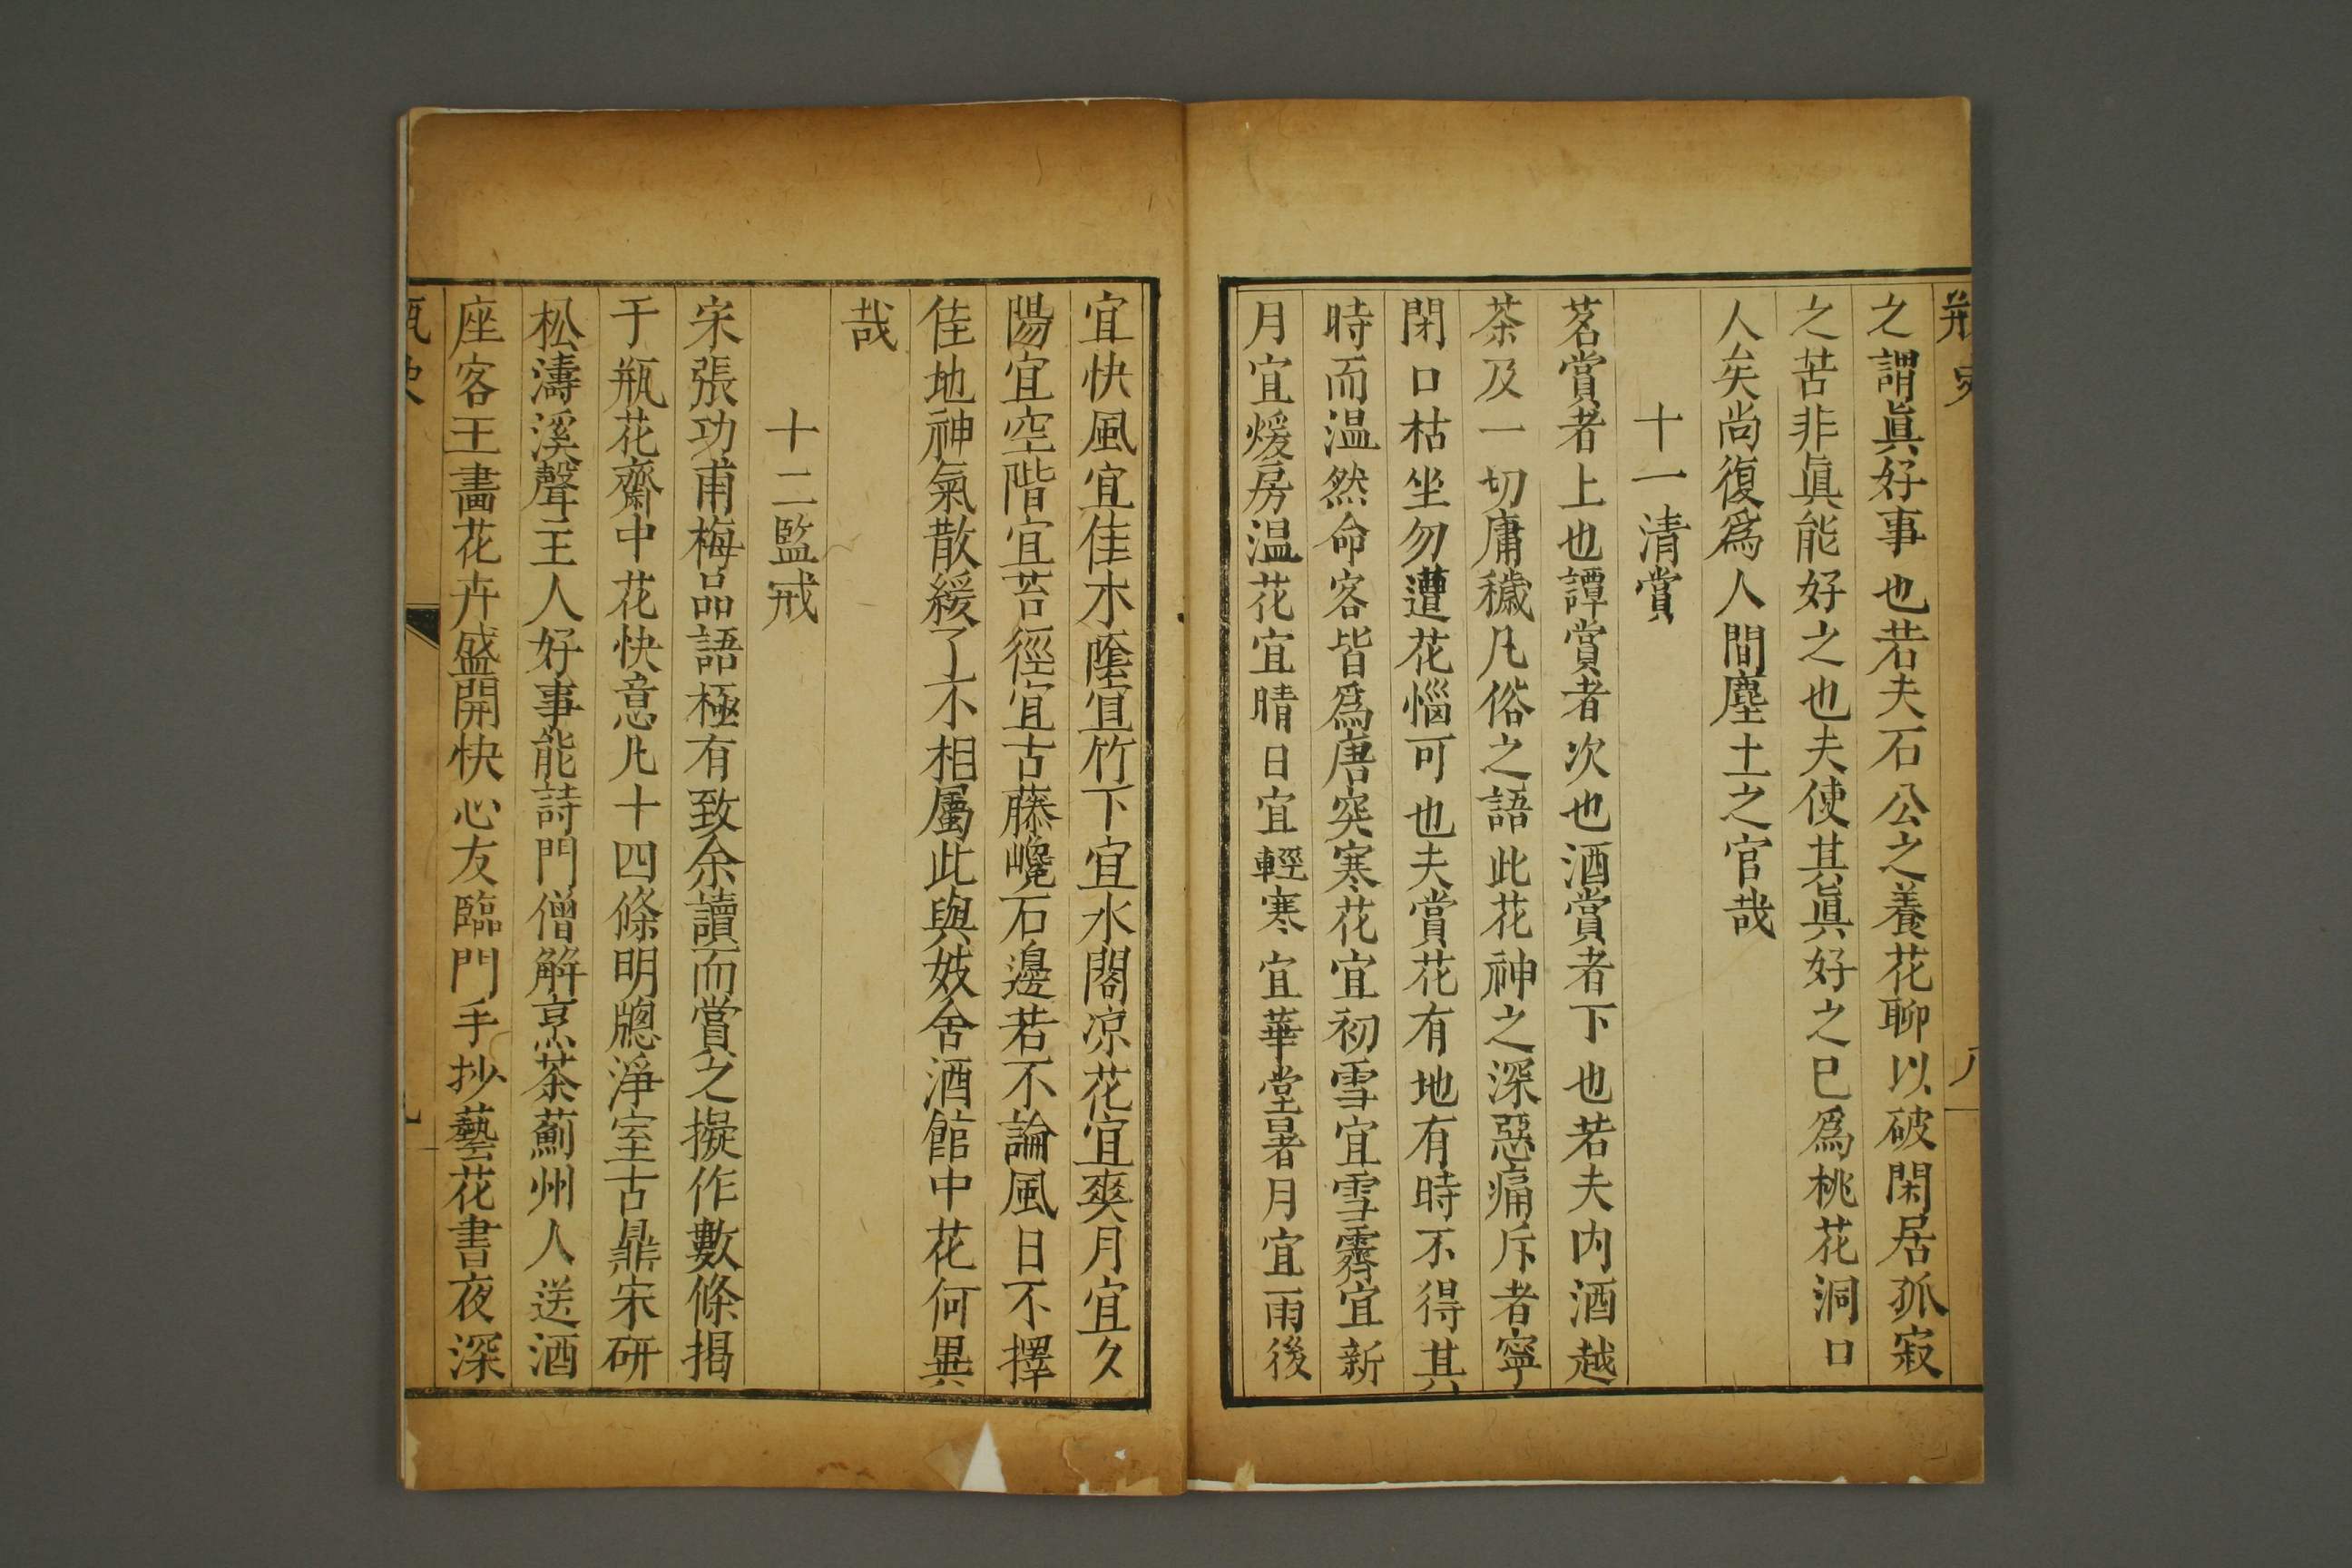 瓶史
八
之謂眞好事也若夫石公之養花聊以破閑居孤寂
之苦非眞能好之也夫使其眞好之已爲桃花洞口
人矣尚復爲人間塵土之官哉
十一清賞
茗賞者上也譚賞者次也酒賞者下也若夫内酒越
茶及一切庸穢凡俗之語此花神之深惡痛斥者寧
閉口枯坐勿遭花惱可也夫賞花有地有時不得其
時而温然命客皆爲唐突寒花宜初雪宜雪霽宜新
月宜煖房温花宜晴日宜輕寒宜華堂暑月宜雨後
宜快風宜佳木蔭宜竹下宜水閣凉花宜爽月宜夕
陽宜空階宜苔徑宜古藤巉石邊若不論風日不擇
佳地神氣散緩了不相屬此與妓舍酒館中花何異
哉
十二監戒
宋張功甫梅品語極有致余讀而賞之擬作數條揭
于瓶花齋中花快意凡十四條明牕淨室古鼎宋硏
松濤溪聲主人好事能詩門僧解烹茶薊州人送酒
座客工畫花卉盛開快心友臨門手抄藝花書夜深
瓶史